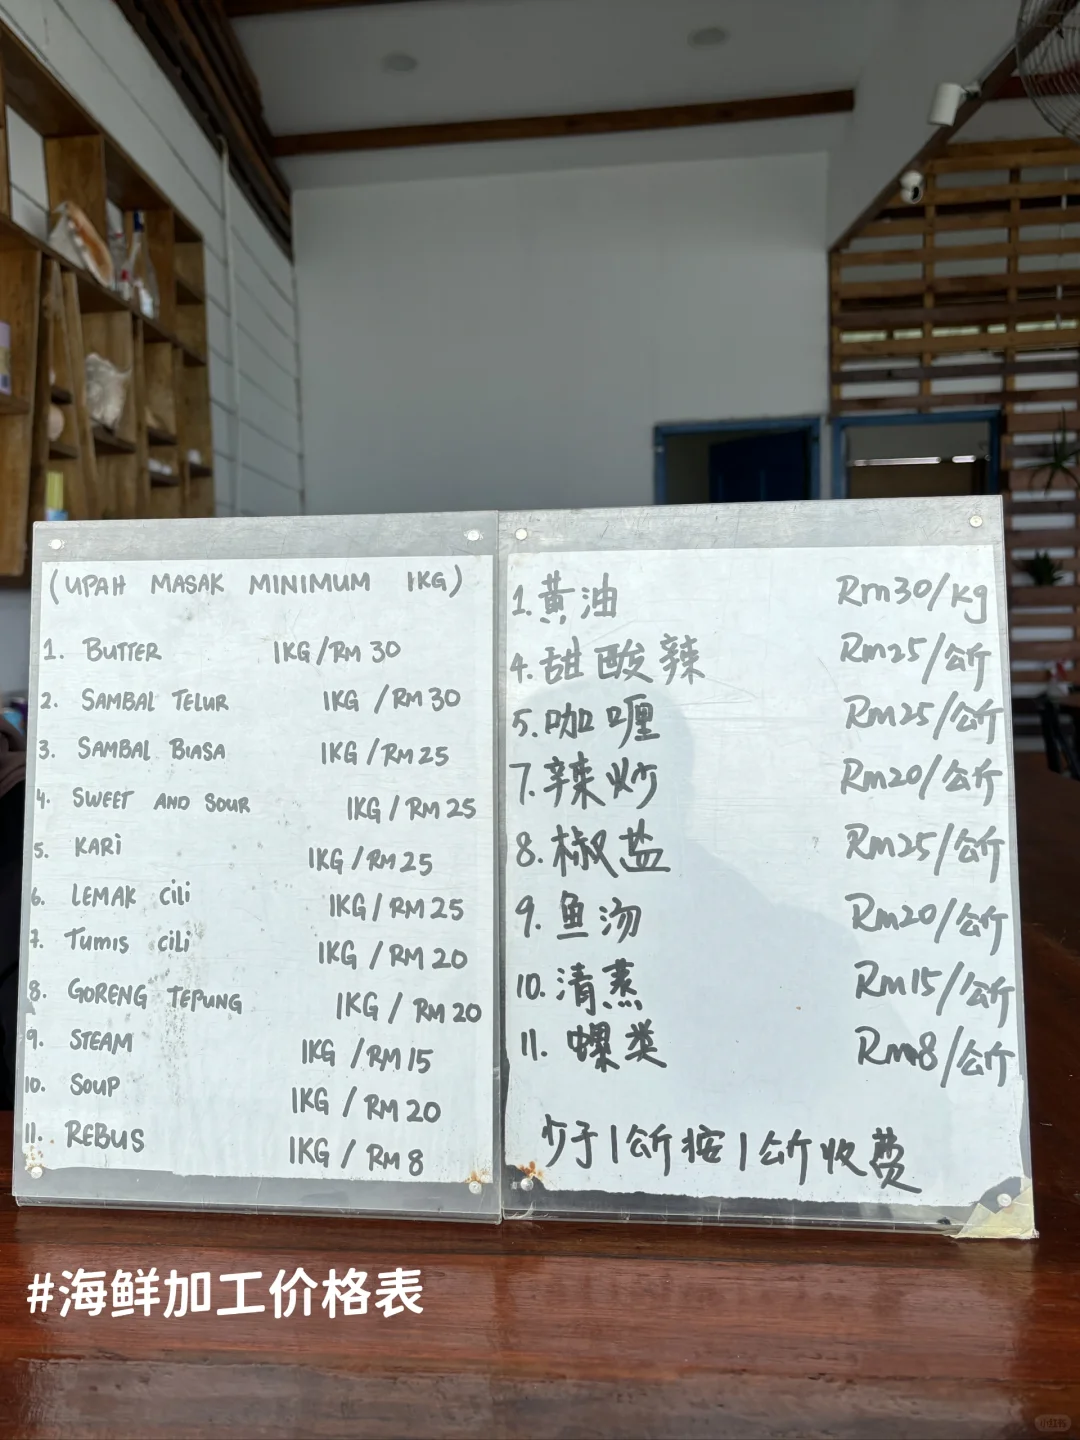 (UPAH MASAK MINIMUM 1KG)
1. BUTTER 1KG/RM 30
2. SAMBAL TELUR 1KG /RM 30
3. SAMBAL BIASA 1KG /RM 25
4. SWEET AND SOUR 1KG / RM 25
5. KARi 1KG /RM 25
6. LEMAK Cili 1KG / RM 25
7. TUMIS Cili 1KG / RM 20
8. GORENG TEPUNG 1KG / RM 20
9. STEAM 1KG /RM 15
10. SOUP 1KG / RM 20
11. REBUS 1KG / RM 8
1.黄油 Rm30/kg
4.甜酸辣 Rm25/公斤
5.咖喱 Rm25/公斤
7.辣炒 Rm20/公斤
8.椒盐 Rm25/公斤
9.鱼汤 Rm20/公斤
10.清蒸 Rm15/公斤
11.螺类 Rm8/公斤
少于1公斤按1公斤收费
#海鲜加工价格表
小红书